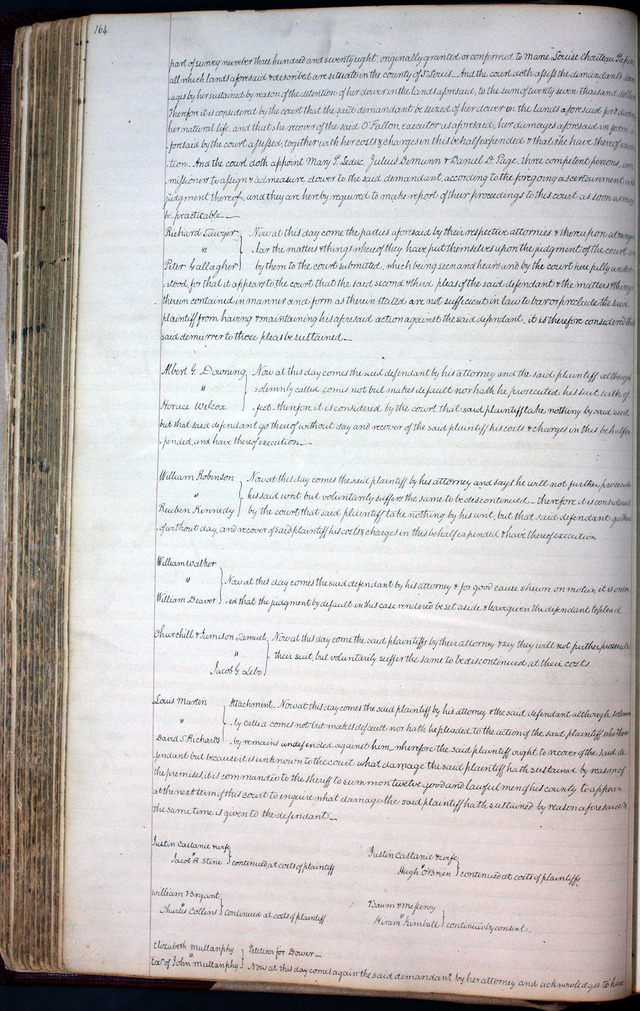 164
part of survey number three hundred and seventy eight, originally granted or confirmed to Marie Louise Chouteau Papin
all which lands aforesaid & described are situate in the county of St Louis. And the court doth assess the demandants dam
ages by her sustained by reason of the detention of her dower in the lands aforesaid, to the sum of twenty seven thousand dollars
Therefore it is considered by the court that the said demandant be seized of her dower in the lands aforesaid for & during
her natural life, and that she recover of the said O'Fallon, Executor as aforesaid, her damages aforesaid in form a
foresaid by the court assessed, together with her costs & charges in this behalf expended & that she have thereof execu
tion. And the court doth appoint Mary P. Leduc, Julius Demunn & Daniel D. Page, three competent persons, com
missioners to assign & admeasure dower to the said demandant, according to the foregoing ascertainment and
judgment thereof, and they are hereby required to make report of their proceedings to this court as soon as may
be practicable.
Richard Sawyer } Now at this day come the parties aforesaid by their respective attornies & thereupon all & singu
" } lar the matters & things whereof they have put themselves upon the judgment of the court as
Peter Gallagher } by them to the court submitted, which being seen and heard and by the court here fully under
stood, for that it appears to the court that the said second & third pleas of the said defendant & the matters & things
therein contained in manner and form as therein stated are not sufficient in law to bar or preclude the said
plaintiff from having & maintaining his aforesaid action against the said defendant, it is therefore considered that
said demurrer to those pleas be sustained.
Albert G Downing } Now at this day comes the said defendant by his attorney and the said plaintiff although
" } solemnly called comes not but makes default nor hath he prosecuted his suit with ef
Horace Wilcox } fect. therefore it is considered by the court that said plaintiff take nothing by said writ
but that said defendant go thereof without day and recover of the said plaintiff his costs & charges in this behalf ex
pended, and have thereof execution.
William Robinson } Now at this day comes the said plaintiff by his attorney and says he will not further prosecute
" } his said writ but voluntarily suffers the same to be discontinued - therefore it is considered
Reuben Kennedy } by the court that said plaintiff take nothing by his writ, but that said defendant go there
of without day, and recover of said plaintiff his costs & charges in this behalf expended & have thereof execution
William Walker
" } Now at this day comes the said defendant by his attorney & for good cause shewn on motion it is order
William Deaver } ed that the judgment by default in this case rendered be set aside & leave given the defendant to plead
Churchill & Jamison Samuel } Now at this day come the said plaintiffs by their attorney & say they will not further prosecute
" } their suit, but voluntarily suffer the same to be discontinued at their costs
Jacob G Lebo
Louis Martin } Attachment. Now at this day comes the said plaintiff by his attorney & the said defendant although solemn
" } ly called comes not but makes default nor hath he pleaded to the action of the said plaintiff who there
David S Richards } by remains undefended against him. wherefore the said plaintiff ought to recover of the said de
fendant but because it is unknown to the court what damage the said plaintiff hath sustained by reason of
the premises it is commanded to the sheriff to summon twelve good and lawful men of his county to appear
at the next term of this court to enquire what damage the said plaintiff hath sustained by reason aforesaid &
the same time is given to the defendant.
Justin Castanie & wife
" } continued at costs of plaintiff
Jacob R Stine
Justin Castanie & wife
" } continued at costs of plaintiffs
Hugh O'Brien
William T Bryant
" } continued at costs of plaintiff
Charles Collins
Daum & Messervy
" } continued by consent.
Hiram Kimball
Elizabeth Mullanphy } Petition for Dower
"
Exr of John Mullanphy } Now at this day comes again the said demandant by her attorney and acknowledges to have